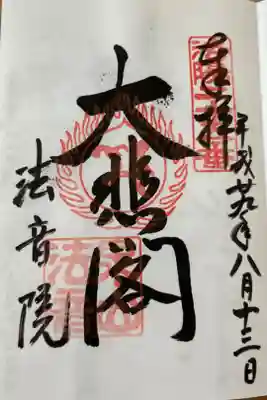 奉拝
平成廿九年八月十三日
大悲閣
法音院